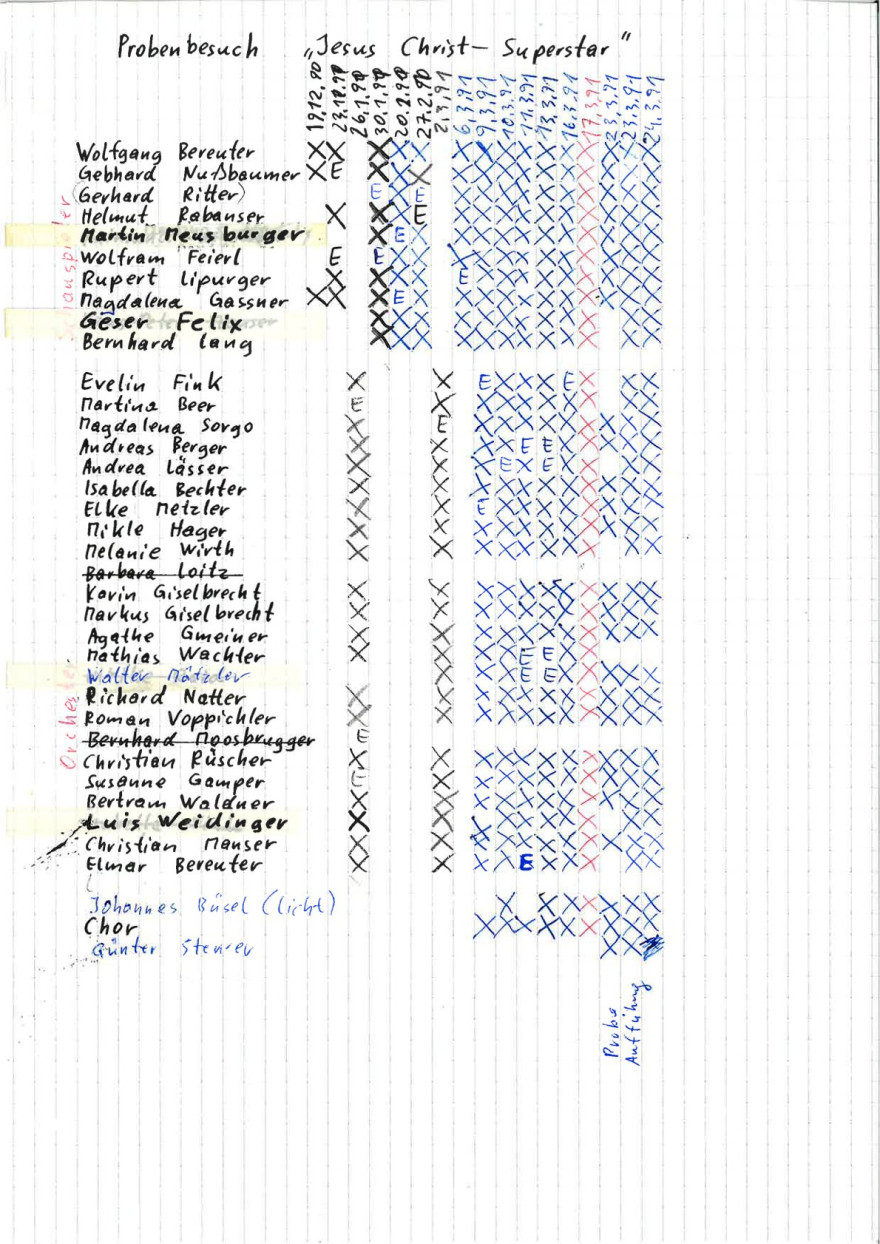 Probenbesuch „Jesus Christ- Superstar"
26.1.90 30.1.90 20.2.90 27.2.90 2.3.91 6.3.91 9.3.91 10.3.91 11.3.91 13.3.91 16.3.91 17.3.91 23.3.91 23.3.91 24.3.91
Schauspieler
Wolfgang Bereuter X X X X X X X X X X X X X X X
Gebhard Nußbaumer X E X X X X X X X X X X X X X
(Gerhard Ritter) E X E X X X X X X X X X X
Helmut Rabanser X X X E X X X X X X X X X X
Martin Meusburger X E X X X X X X X X X X X
Wolfram Feierl E E X X X X X X X X X X X X
Rupert Lipurger X X X X E X X X X X X X X X
Magdalena Gassner X X X E X X X X X X X X X X X
Geser Felix X X X X X X X X X X X X
Bernhard Lang X X X X X X X X X X X X
Orchester
Evelin Fink X X E X X X E X X X
Martina Beer E X X X X X X X X X
Magdalena Sorgo X E X X X X X X X X X
Andreas Berger X X X X E E X X X X
Andrea Lässer X X X E X E X X X X
Isabella Bechter X X X X X X X X X X X
Elke Metzler X X E X X X X X X X X
Mikle Hager X X X X X X X X X X X
Melanie Wirth X X X X X X X X X X
Barbara Loitz
Karin Giselbrecht X X X X X X X X X X X
Markus Giselbrecht X X X X X X X X X X X
Agathe Gmeiner X X X X X X X X X X X
Mathias Wachter X X X X E E X X
Walter Mätzler X X X E E X X X X X
Richard Natter X X X X X X X X X X X
Roman Voppichler X X X X X X X X X X X
Bernhard Moosbrugger E
Christian Rüscher X X X X X X X X X X X
Susanne Gamper E X X X X X X X X X X
Bertram Waldner X X X X X X X X X X X
Luis Weidinger X X X X X X X X X X
Christian Manser X X X X X X X X X X X
Elmar Bereuter X X X X E X X X X X
Johannes Büsel (Licht) X X X X X X X
Chor X X X X X X X X X
Günter X X
Probe
Aufführung